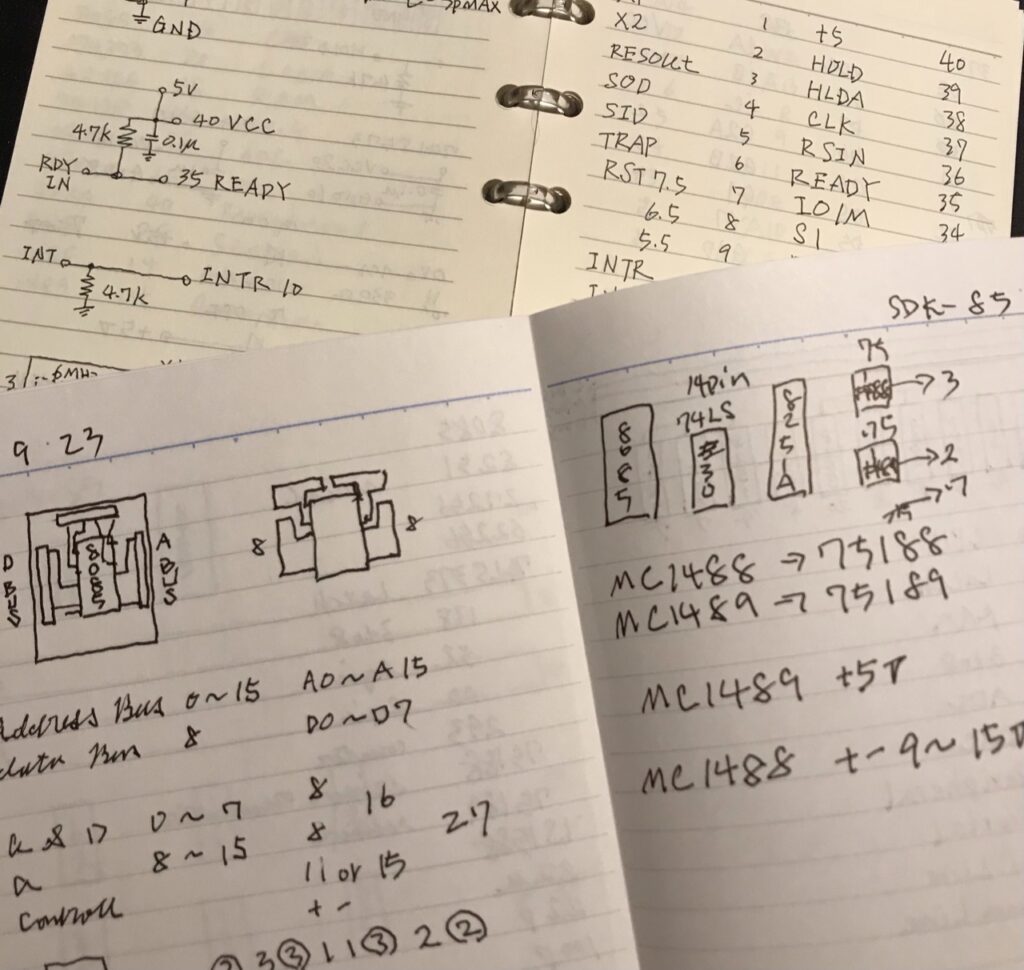 3pMAX
GND
5V
40 VCC
4.7k
0.1μ
RDY
IN
35 READY
INT
INTR 10
4.7k
X2 1 +5 40
RESOUT 2 HOLD 39
SOD 3 HLDA 38
SID 4 CLK 37
TRAP 5 RSIN 36
RST 7.5 6 READY 35
6.5 7 IO/M 34
5.5 8 S1
INTR 9
9.23
D BUS
8085
A BUS
8
8
Address Bus 0~15 A0~A15
data Bus 8 D0~D7
a & D 0~7 8
a 8~15 8 16
Controll 11 or 15 27
+ -
3 ③ 1 1 ③ 2 ②
SDK-85
8085
14pin
74LS
30
825A
75
3
75
2
MC1488 → 75188
MC1489 → 75189
MC1489 +5V
MC1488 +-9~15V